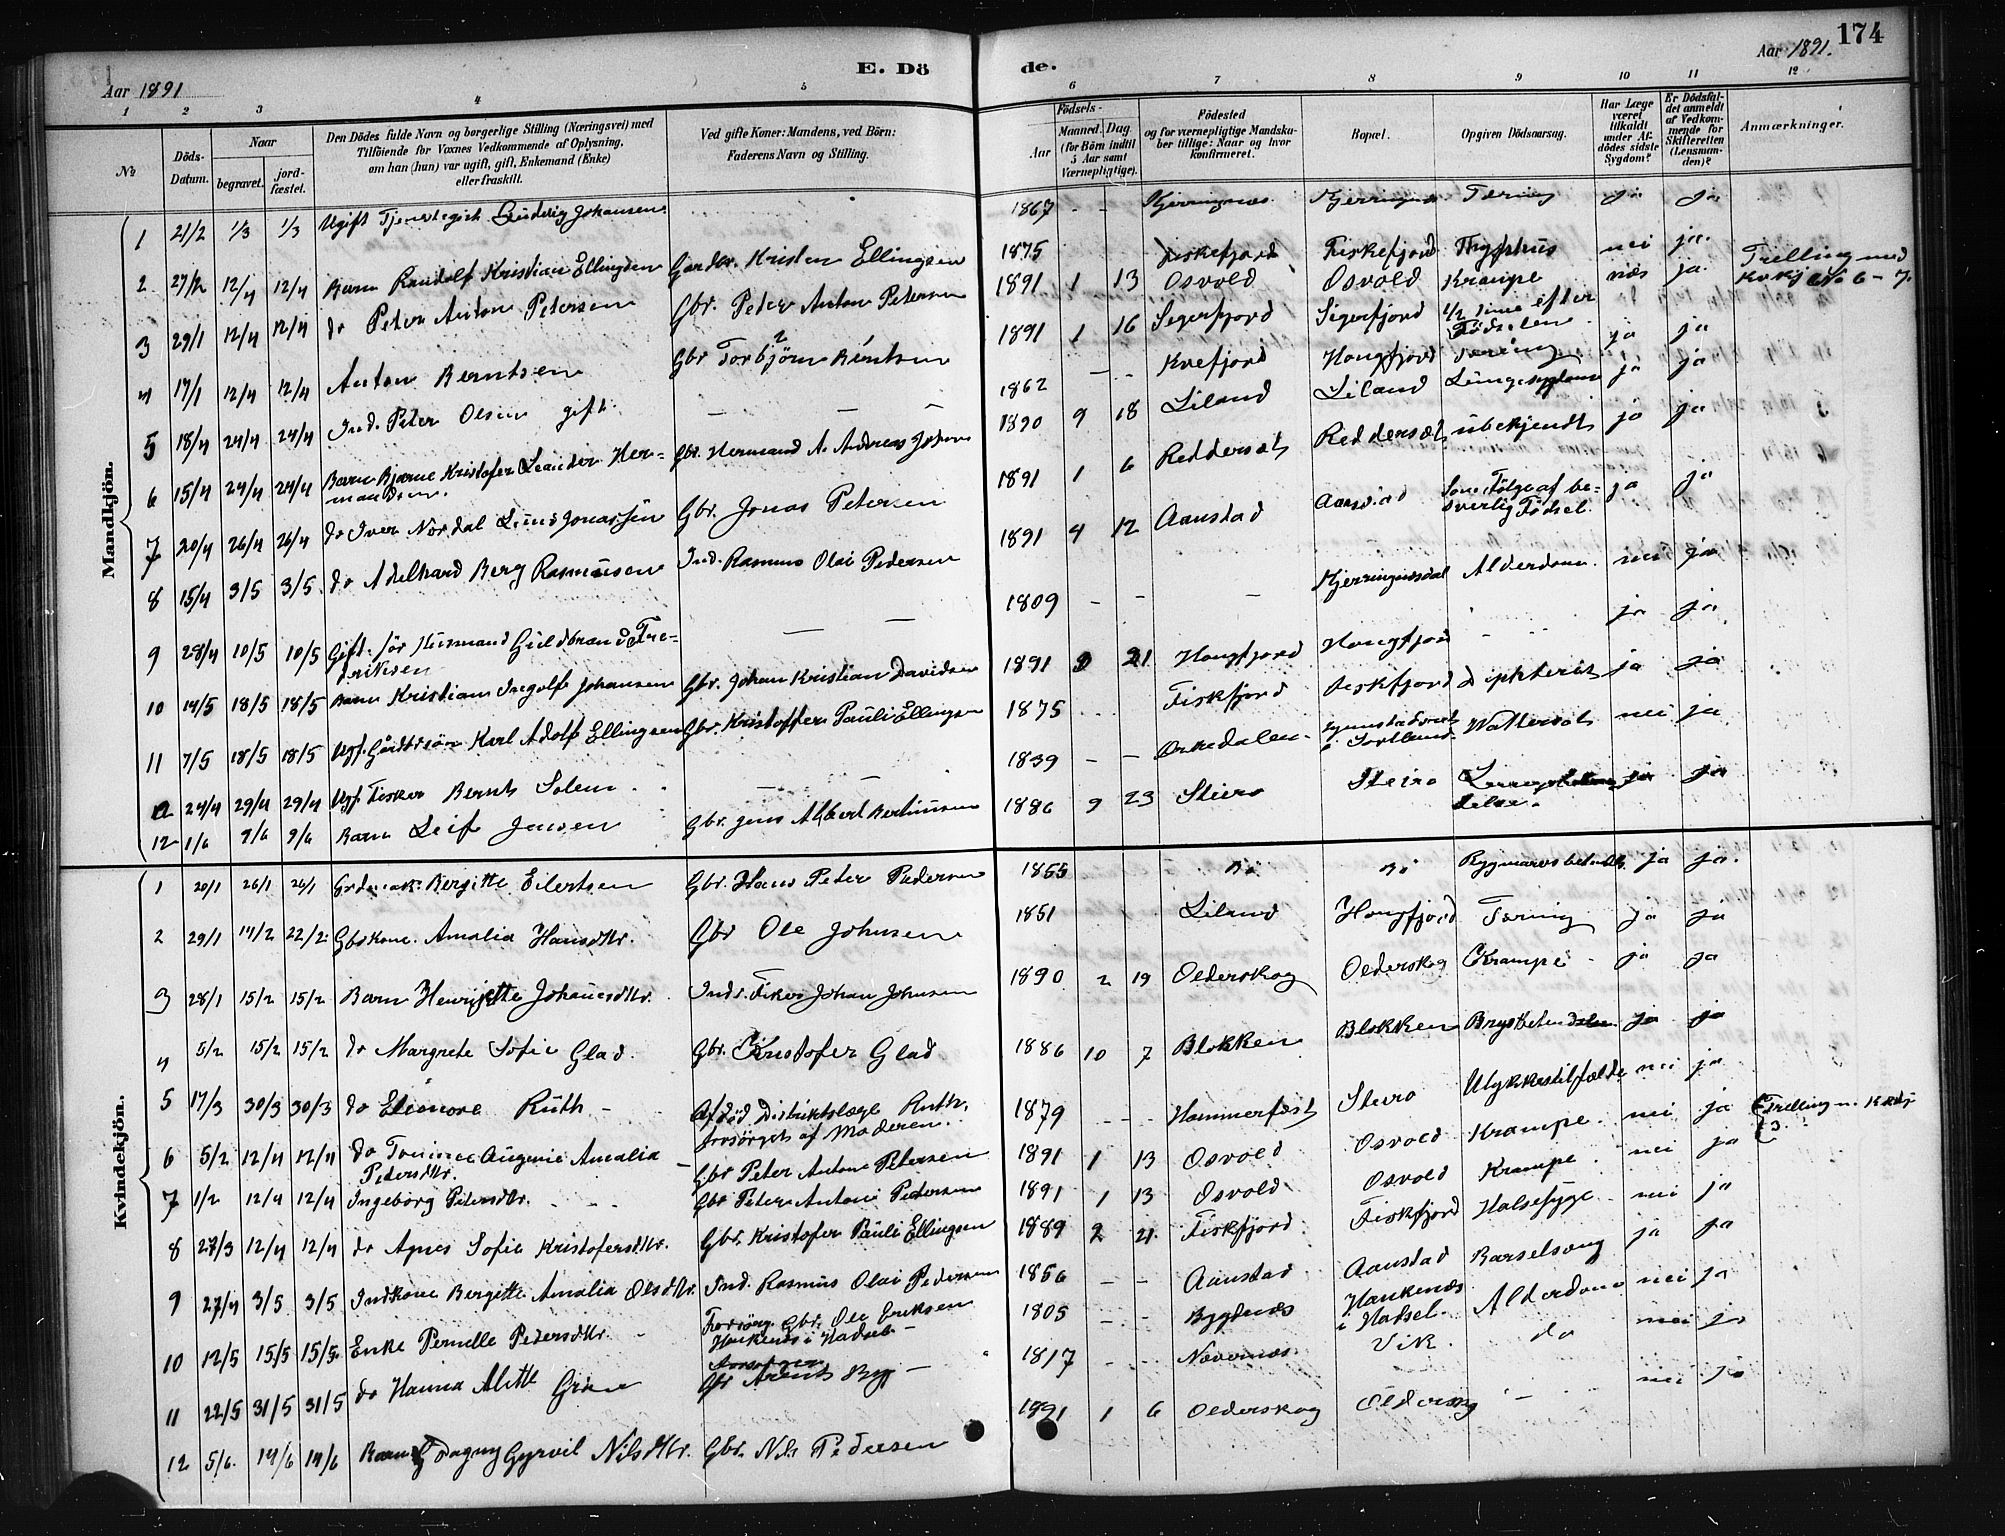 174
Aar 1891
E. Dö
de.
Aar 1891.
1 2 3 4 5 6 7 8 9 10 11 12
№
Döds-Datum.
Naar
begravet.
jord-fæstet.
Den Dödes fulde Navn og borgerlige Stilling (Næringsvei) med
Tilföiende for Voxnes Vedkommende af Oplysning,
om han (hun) var ugift, gift, Enkemand (Enke)
eller fraskilt.
Ved gifte Koner: Mandens, ved Börn:
Faderens Navn og Stilling.
Födsels-
Aar
Maaned. Dag.
(for Börn indtil
5 Aar samt
Værnepligtige).
Födested
og for værnepligtige Mandska-
ber tillige: Naar og hvor
konfirmeret.
Bopæl.
Opgiven Dödsaarsag.
Har Læge
været
tilkaldt
under Af-
dödes sidste
Sygdom?
Er Dödsfal-
det anmeldt
af Vedkom-
mende for
Skifteretten
(Lensman-
den)?
Anmærkninger.
Mandkjön.
1 21/2 1/3 1/3 Ugift Johansen 1867 - - Kjerringnes Tæring ja ja
2 27/2 12/4 12/4 Barn Randolf Kristian Ellingsen Kristen Ellingsen 1875 Fiskefjord Fiskefjord nei ja.
3 29/1 12/4 12/4 do Peter Anton Petersen Gbr. Peter Anton Petersen 1891 1 13 Osvold Osvold Krampe nei ja. Trelling med Kvkj № 6 - 7.
4 17/1 12/4 12/4 Anton Berntsen Gbr Torbjörn Berntsen 1891 1 16 Segerfjord Sigerfjord 1/2 Time efter Födselen ja ja
5 18/4 24/4 24/4 Ind. Peter Olsen gift. - - - 1862 - - Kvefjord Hongfjord Tæring ja ja
6 15/4 24/4 24/4 Barn Bjarne Kristofer Leander Her-
mandsen. Gbr. Hermand A. Andreas Johan 1890 9 18 Liland Liland ja ja
7 20/4 26/4 26/4 do Iver Nordal Lund Jonassen Gbr. Jonas Petersen 1891 1 6 Reddersæt Reddersæt ubekjendt ja ja
8 15/4 3/5 3/5 do Adelhard Berg Rasmusen Ind. Rasmus Olai Pedersen 1891 4 12 Aanstad Aanstad Som Fölge af be-
sværlig Födsel. ja ja
9 28/4 10/5 10/5 Gift. för Husmand Guldbrand Fre-
driksen - - 1809 - - - Alderdom nei ja
10 14/5 18/5 18/5 Barn Kristian Ingolf Johansen Gbr. Johan Kristian Davidsen 1891 21 Hongfjord Hongfjord ja ja
11 7/5 18/5 18/5 Ugf. Karl Adolf Ellingsen Gbr. Kristoffer Pauli Ellingsen 1875 Fiskfjord Fiskfjord Difhterit ja ja
a 24/4 29/4 29/4 Ugf. Fisker Bernt Solem 1839 - - Orkedalen i Sortland Wattersot nei ja
12 1/6 9/6 9/6 Barn Leif Jensen Gbr. Jens Albert Bertinusen 1886 9 23 Steiro Steiro ja ja
Kvindekjön.
1 20/1 26/1 26/1 Bergitte Eilertsen Gbr. Hans Peter Pedersen 1855 Bö Bö ja ja.
2 29/1 14/2 22/2 Gbrkone. Amalia Hansdtr. Gbr Ole Johnsen 1851 Liland Hongfjord Tæring ja ja
3 28/1 15/2 15/2 Barn Henriette Johansdtr. Inds. Fisker Johan Johnsen 1890 2 19 Olderskog Olderskog Krampe ja ja
4 5/2 15/2 15/2 do Margrete Sofie Glad. Gbr. Kristofer Glad 1886 10 7 Blokken Blokken Brystbetændelse ja ja
5 17/3 30/3 30/3 do Eleonore Ruth - Afdöd Distriktslæge Ruth,
forsörget af Moderen. 1879 - - Hammerfest Steiro Ulykkestilfælde nei ja
6 5/2 12/4 12/4 do Augenie Amalia
Petersdtr. Gbr Peter Anton Petersen 1891 1 13 Osvold Osvold Krampe nei ja Trelling m. Mkj 3
7 1/2 12/4 12/4 Ingeborg Petersdtr. Gbr Peter Anton Petersen 1891 1 13 Osvold Osvold Krampe nei ja
8 27/3 12/4 12/4 do Agnes Sofie Kristofersdtr. Gbr. Kristofer Pauli Ellingsen 1889 2 21 Fiskfjord Fiskfjord Halsesyge nei ja
9 27/4 3/5 3/5 Indkone Bergitte Amalia Olsdtr. Ind. Rasmus Olai Pedersen 1856 - - Aanstad Aanstad Barselseng ja ja
10 12/5 15/5 15/5 Enke Pernille Pedersdtr. Forsörg. Gbr. Ole Eriksen
Haukenes i Hadsel - 1805 - - Bygdenes Haukenæs
i Hadsel. Alderdom nei ja
11 22/5 31/5 31/5 do Hanna Alette Grön Gbr Arent - 1817 - - Vik. do nei ja
12 5/6. 14/6 14/6 Barn Dagny Gyrvil Nilsdtr. Gbr. Nils Pedersen 1891 1 6 Olderskog Olderskog - nei ja